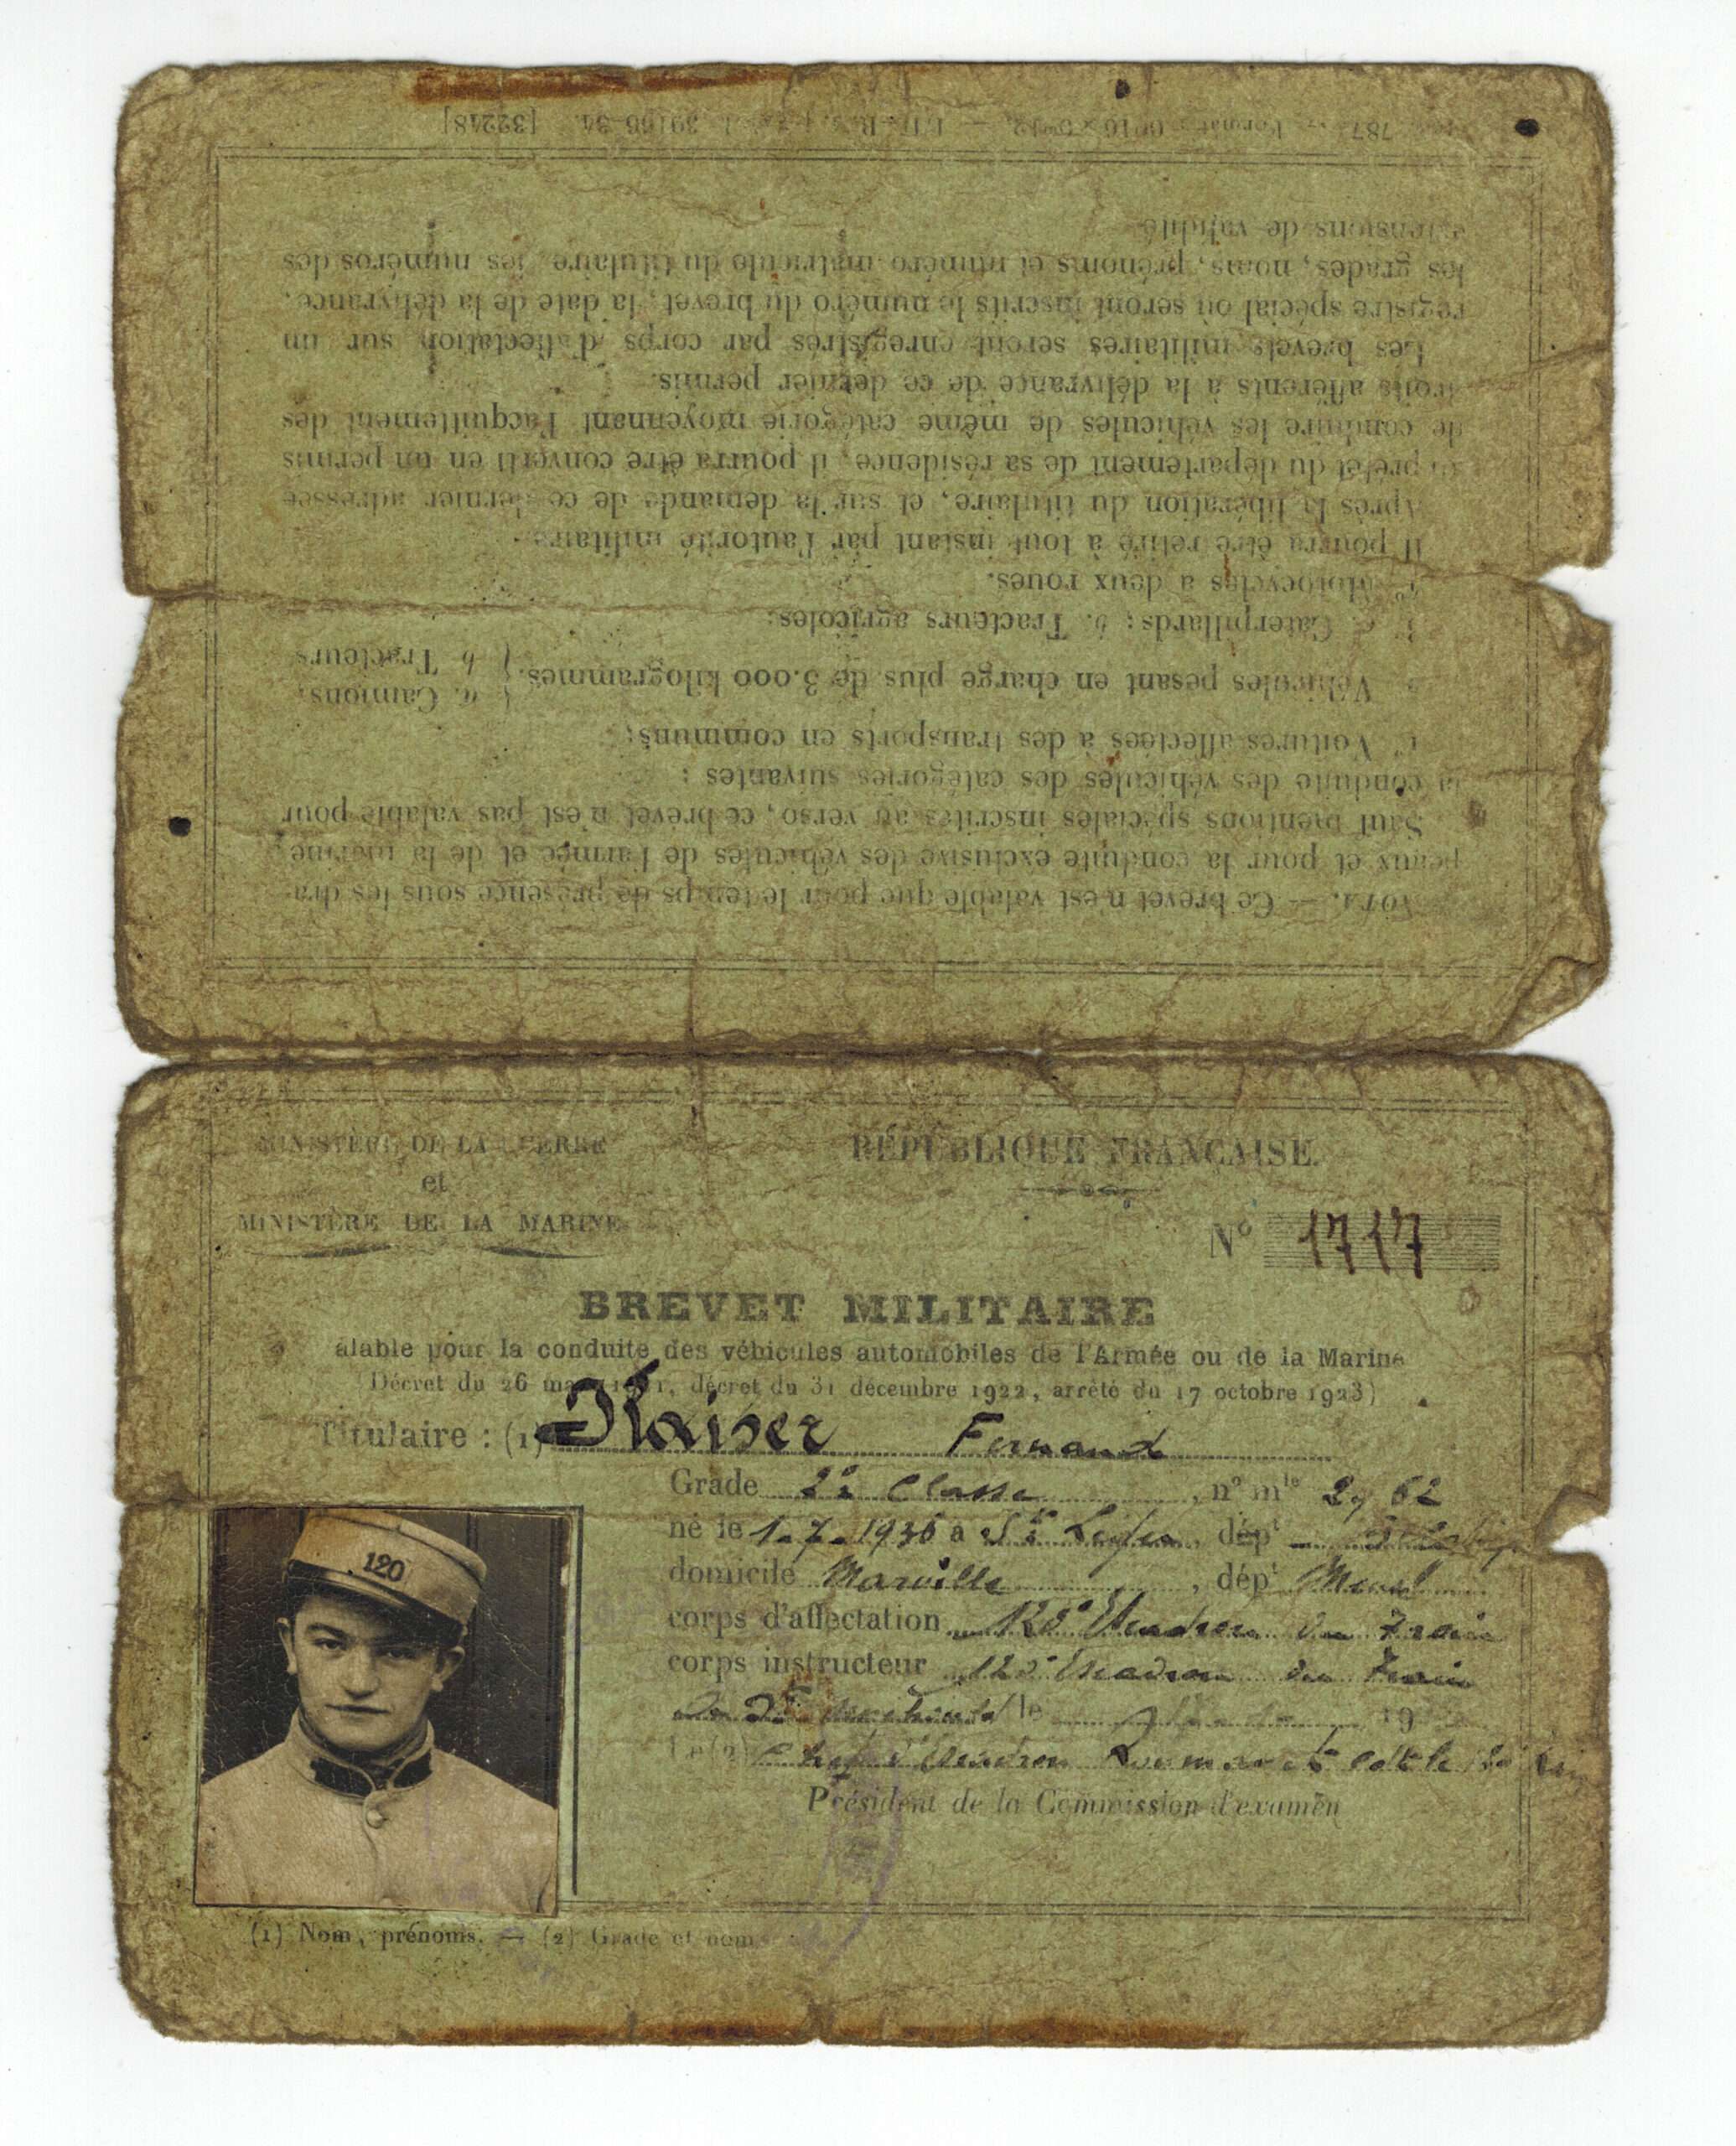 MINISTÈRE DE LA GUERRE
et
MINISTÈRE DE LA MARINE
RÉPUBLIQUE FRANÇAISE.
N° 1717
BREVET MILITAIRE
alable pour la conduite des véhicules automobiles de l'Armée ou de la Marine
Décret du 26 ma 1, décret du 31 décembre 1922, arrêté du 17 octobre 1923)
Titulaire : (1) Kaiser Fernand
Grade 2e Classe, n° mle 62
né le 1.7.1936 à St, dépt
domicile Marville, dépt
corps d'affectation 120e Escadron du Train
corps instructeur 120e Escadron du Train
le 19
Le (2) Chef d'Escadron
Président de la Commission d'examen
120
(1) Nom, prénoms. — (2) Grade et noms
NOTA. — Ce brevet n'est valable que pour le temps de présence sous les dra-
peaux et pour la conduite exclusive des véhicules de l'armée et de la marine.
Sauf mentions spéciales inscrites au verso, ce brevet n'est pas valable pour
la conduite des véhicules des catégories suivantes :
1° Voitures affectées à des transports en communs;
Véhicules pesant en charge plus de 3.000 kilogrammes. { a. Camions.
{ b Tracteurs
3° a. Caterpillards; b. Tracteurs agricoles;
Motocycles à deux roues.
Il pourra être retiré à tout instant par l'autorité militaire.
Après la libération du titulaire, et sur la demande de ce dernier adressée
au préfet du département de sa résidence, il pourra être converti en un permis
de conduire les véhicules de même catégorie moyennant l'acquittement des
droits afférents à la délivrance de ce dernier permis.
Les brevets militaires seront enregistrés par corps d'affectation sur un
registre spécial où seront inscrits le numéro du brevet, la date de la délivrance,
les grades, noms, prénoms et numéro matricule du titulaire, les numéros des
extensions de validité
787 Format 39166-34. [32248]